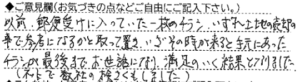 ◆ご意見欄(お気づきの点などご自由にご記入下さい。)
以前、郵便受けに入っていた一枚のチラシ、いずれ土地の売却の
事で参考になるかと取って置き、いざその時が来ると手元にあった
チラシの最後までお世話になり、満足のいく結果となりました
(ネットで数社の検さくもしました)